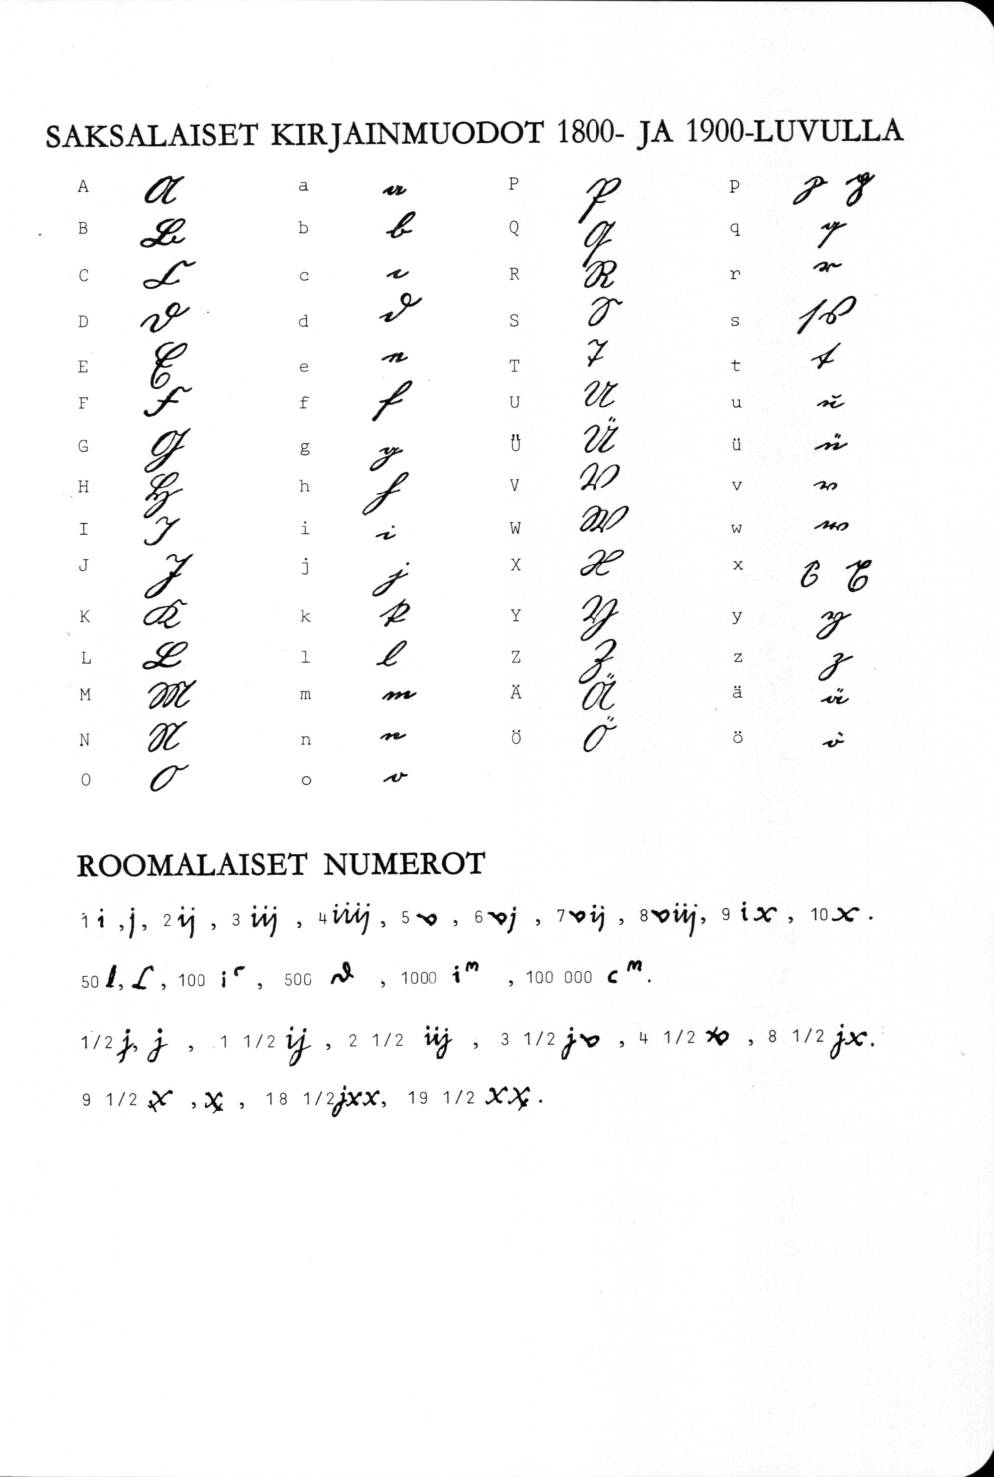 SAKSALAISET KIRJAINMUODOT 1800- JA 1900-LUVULLA
A A a a P P p p p
B B b b Q Q q q
C C c c R R r r
D D d d S S s s s
E E e e T T t t
F F f f U U u u
G G g g Ü Ü ü ü
H H h h V V v v
I I i i W W w w
J J j j X X x x x
K K k k Y Y y y
L L l l Z Z z z
M M m m Ä Ä ä ä
N N n n Ö Ö ö ö
O O o o
ROOMALAISET NUMEROT
1 i , j, 2 ij , 3 iij , 4 iiij , 5 v , 6 vj , 7 vij , 8 viij, 9 ix , 10 x .
50 l, L , 100 i^c , 500 d , 1000 i^m , 100 000 c^m.
1/2 j, j , 1 1/2 ij , 2 1/2 iij , 3 1/2 jv , 4 1/2 v , 8 1/2 jx.
9 1/2 x , x , 18 1/2 jxx, 19 1/2 xx .